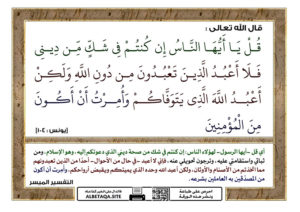 قال الله تعالى :
قُلْ يَا أَيُّهَا النَّاسُ إِن كُنتُمْ فِي شَكٍّ مِّن دِينِي
فَلَا أَعْبُدُ الَّذِينَ تَعْبُدُونَ مِن دُونِ اللَّهِ وَلَٰكِنْ
أَعْبُدُ اللَّهَ الَّذِي يَتَوَفَّاكُمْ وَأُمِرْتُ أَنْ أَكُونَ
مِنَ الْمُؤْمِنِينَ
[يونس : ١٠٤]
أي قل -أيها الرسول- لهؤلاء الناس: إن كنتم في شك من صحة ديني الذي دعوتكم إليه، وهو الإسلام، ومن
ثباتي واستقامتي عليه، وترجون تحويلي عنه، فإني لا أعبد -في حال من الأحوال- أحدًا من الذين تعبدونهم
مما اتخذتم من الأصنام والأوثان، ولكن أعبد الله وحده الذي يميتكم ويقبض أرواحكم، وأمرت أن أكون
من المصدِّقين به العاملين بشرعه.
التفسير الميسر
ALBETAQA.SITE